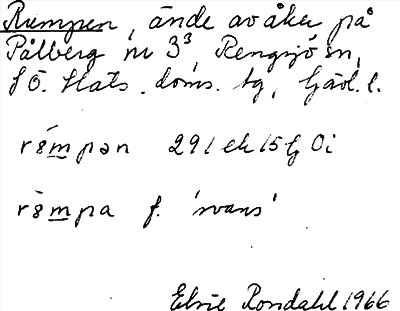 Rumpen, ände av åker på
Pålberg nr 3³, Rengsjö sn,
S Ö. Häls. doms. tg, Gävl. l.
rømpən 291 ek 15 G Oi
rømpa f. 'svans'
Elsie Rondahl 1966